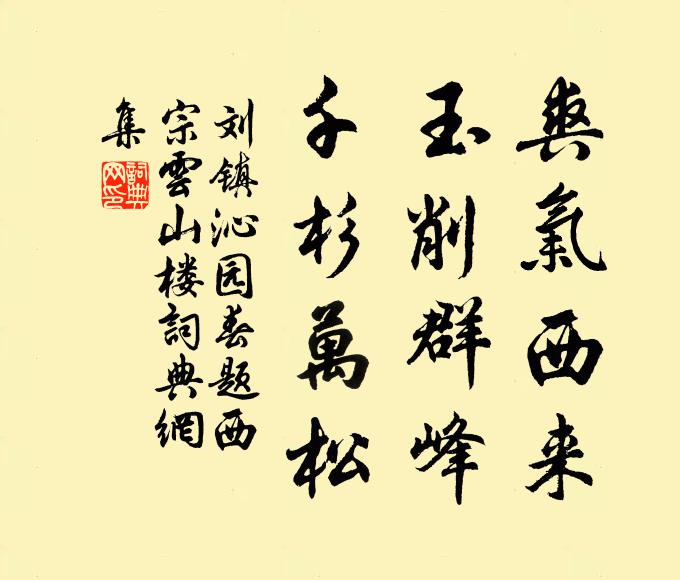 爽氣西来
玉削群峰
千杉萬松
刘镇沁园春题西
宗雲山楼詞典網
集
詞典網印